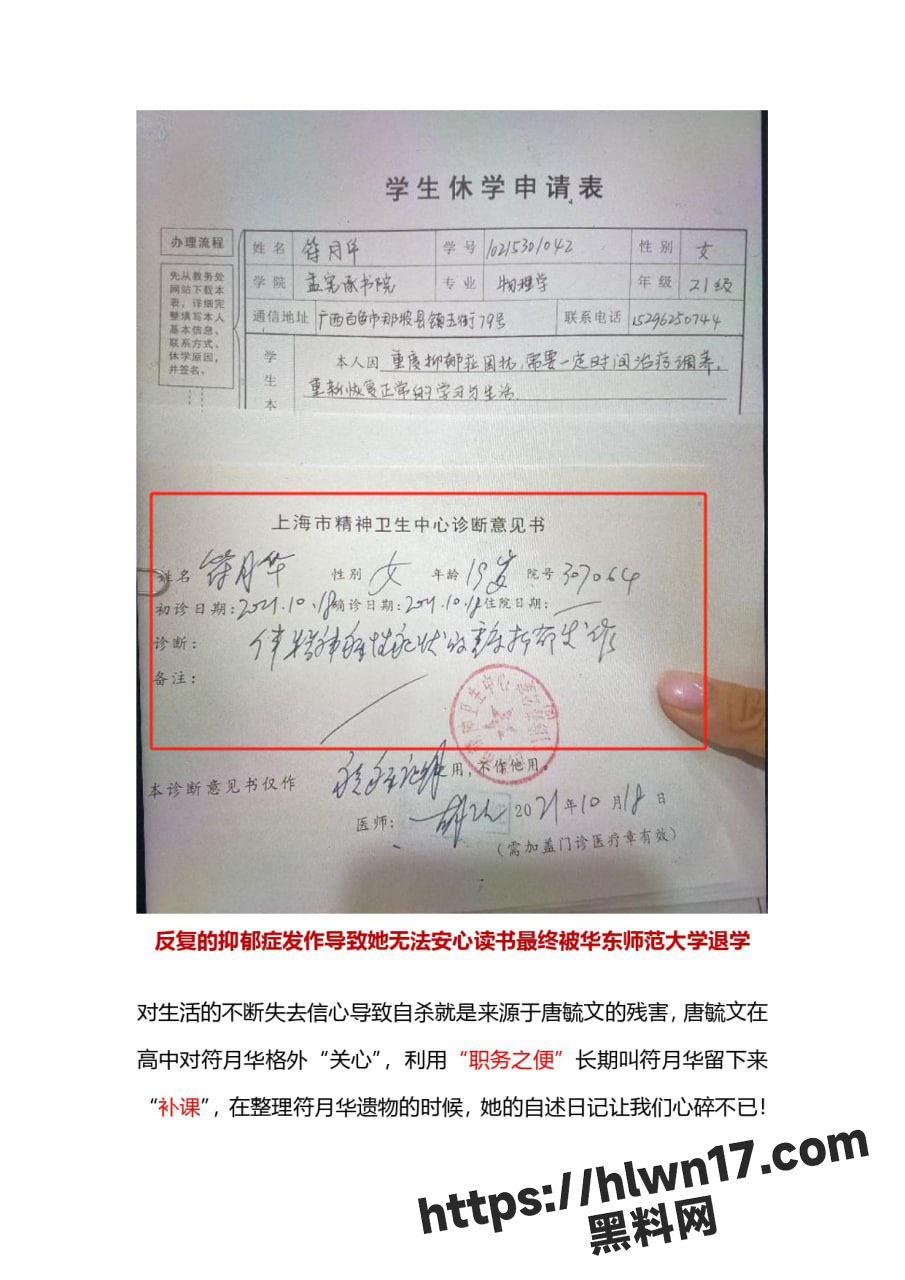 学生休学申请表
办理流程
先从教务处
网站下载本
表，详细完
整填写本人
基本信息、
联系方式、
休学原因，
并签名。
姓名 符月华 学号 10215301042 性别 女
学院 孟宪承书院 专业 物理学 年级 21级
通信地址 广西百色市那坡县镇玉街79号 联系电话 15296250744
学
生
本
本人因重度抑郁症困扰，需要一定时间治疗调养，
重新恢复正常的学习与生活.
上海市精神卫生中心诊断意见书
姓名 符月华 性别 女 年龄 19岁 院号 307064
初诊日期：2021.10.18 确诊日期：2021.10.18 住院日期：
诊断： 伴精神病性症状的重度抑郁发作
备注：
本诊断意见书仅作 用，不作他用。
医师： 2021年10月18日
（需加盖门诊医疗章有效）
反复的抑郁症发作导致她无法安心读书最终被华东师范大学退学
对生活的不断失去信心导致自杀就是来源于唐毓文的残害，唐毓文在
高中对符月华格外“关心”，利用“职务之便”长期叫符月华留下来
“补课”，在整理符月华遗物的时候，她的自述日记让我们心碎不已！
https://hlwn17.com
黑料网